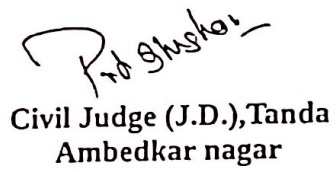 Civil Judge (J.D.),Tanda
Ambedkar nagar